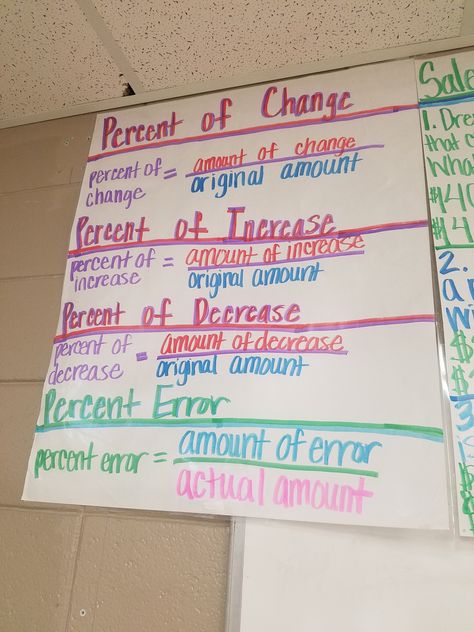 Percent of Change
percent of change = amount of change
original amount
Percent of Increase
percent of increase = amount of increase
original amount
Percent of Decrease
percent of decrease = amount of decrease
original amount
Percent Error
percent error = amount of error
actual amount
Sale
1. Dre
that c
Wha
$140
$14
2.
a
wi
3